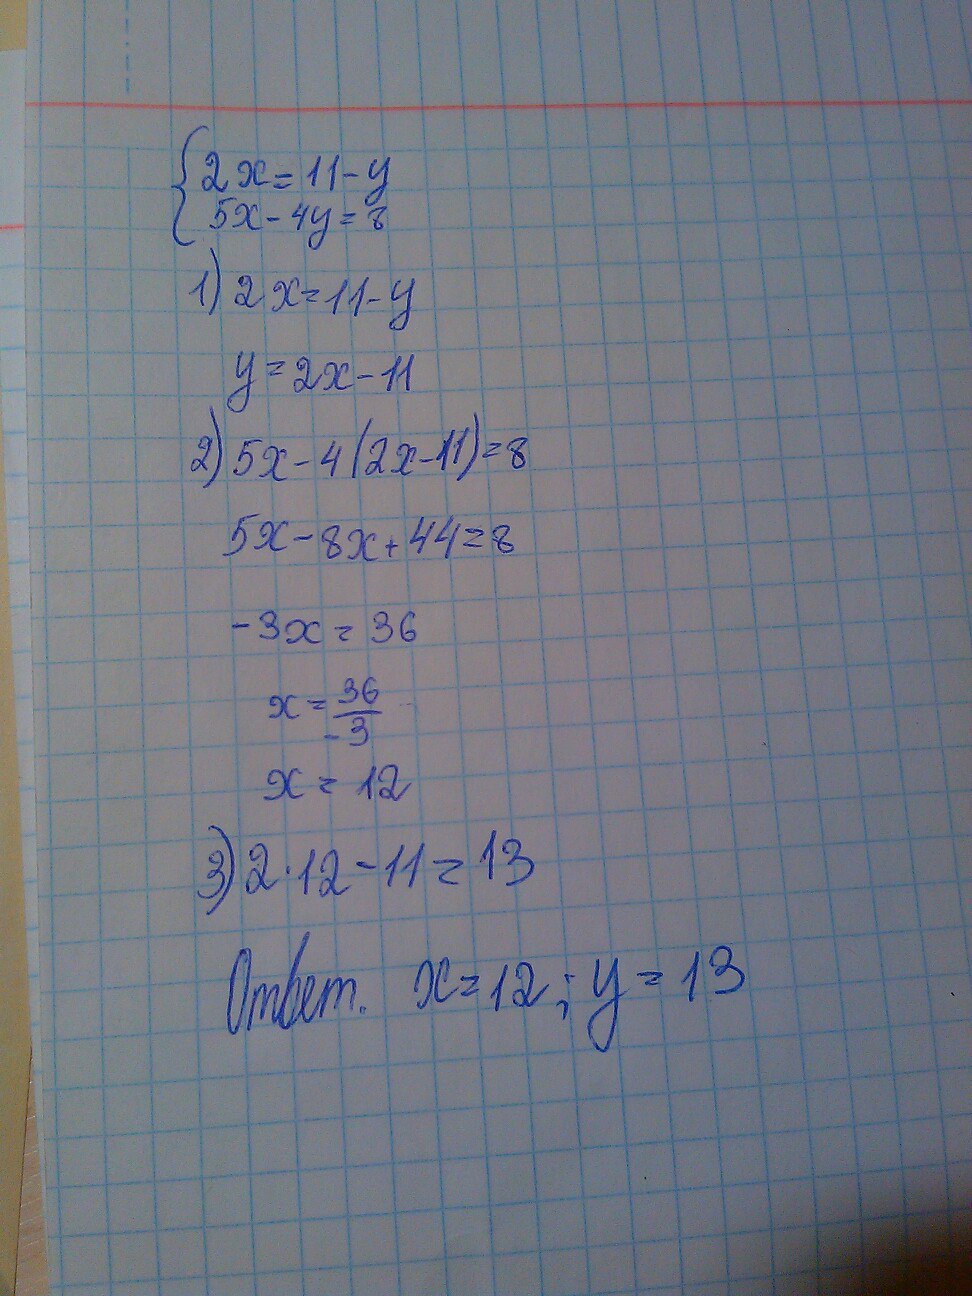 {2x = 11 - y
5x - 4y = 8
1) 2x = 11 - y
y = 2x - 11
2) 5x - 4(2x - 11) = 8
5x - 8x + 44 = 8
-3x = 36
x = 36/-3
x = 12
3) 2 · 12 - 11 = 13
Ответ. x = 12; y = 13